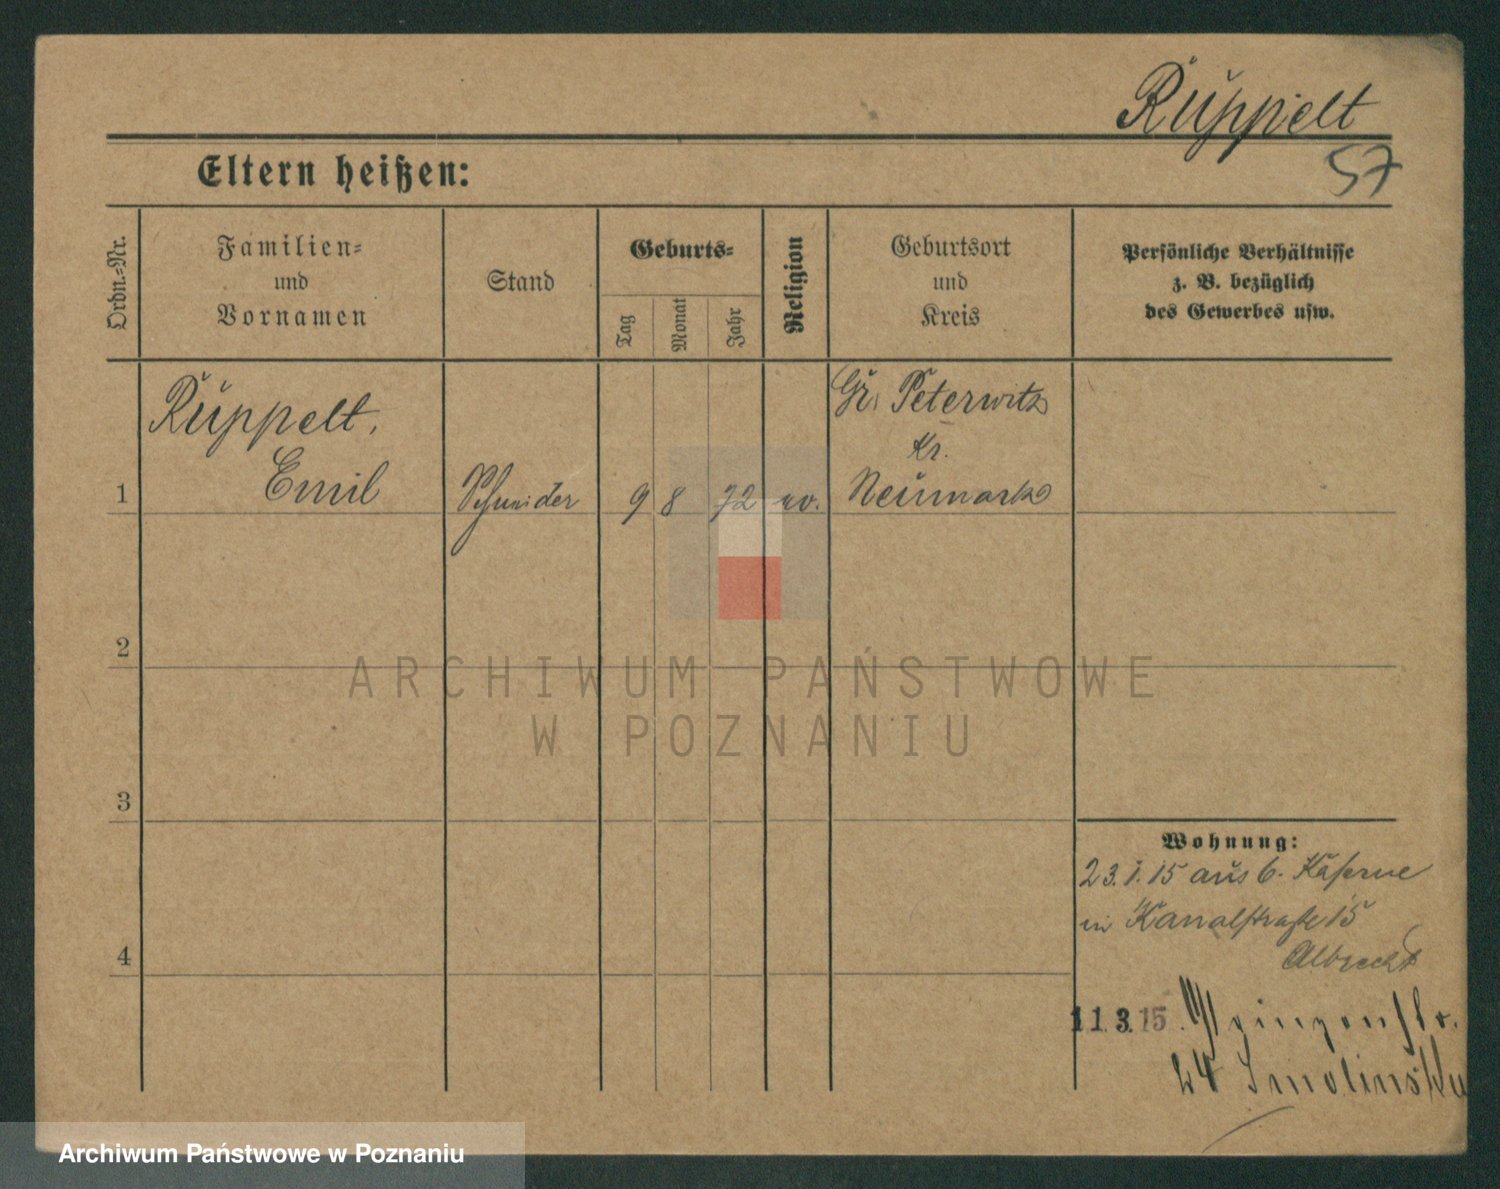 Rüppelt
57
Eltern heißen:
Ordn.-Nr.
Familien-
und
Vornamen
Stand
Geburts-
Tag
Monat
Jahr
Religion
Geburtsort
und
Kreis
Persönliche Verhältnisse
z. B. bezüglich
des Gewerbes usw.
1
Rüppelt,
Emil
Schneider
9
8
72
ev.
Gr. Peterwitz
Kr.
Neumark
2
3
4
Wohnung:
23.1.15 aus 6. Kaserne
in Kanalstraße 15
Albrecht
11.3.15.
24 Smolinski
ARCHIWUM PAŃSTWOWE
W POZNANIU
Archiwum Państwowe w Poznaniu